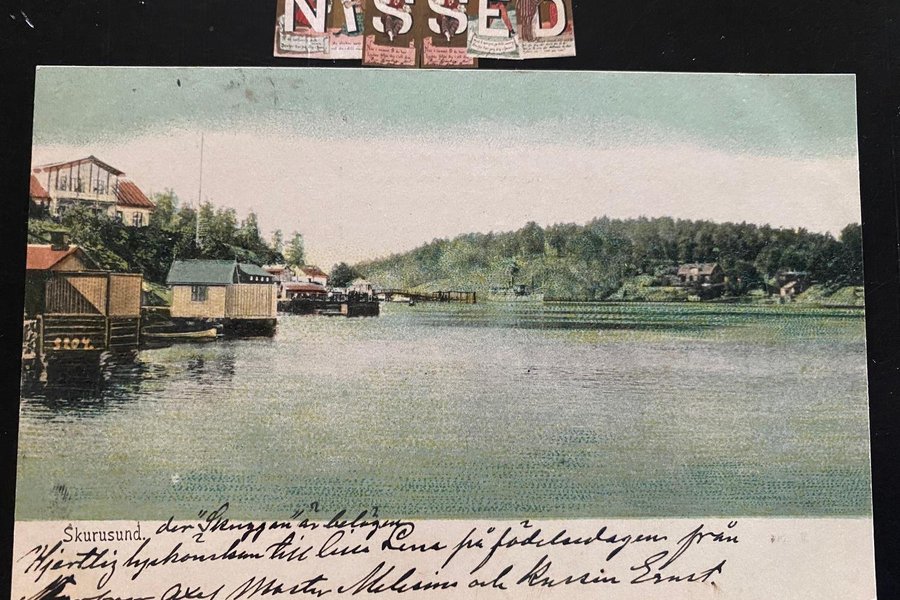 NISSED
5204.
Skurusund. der "Skuggan" är belägen
Hjertlig lyckönskan till lilla Lena på födelsedagen från
Axel Moster Melisin och Kussin Ernst.